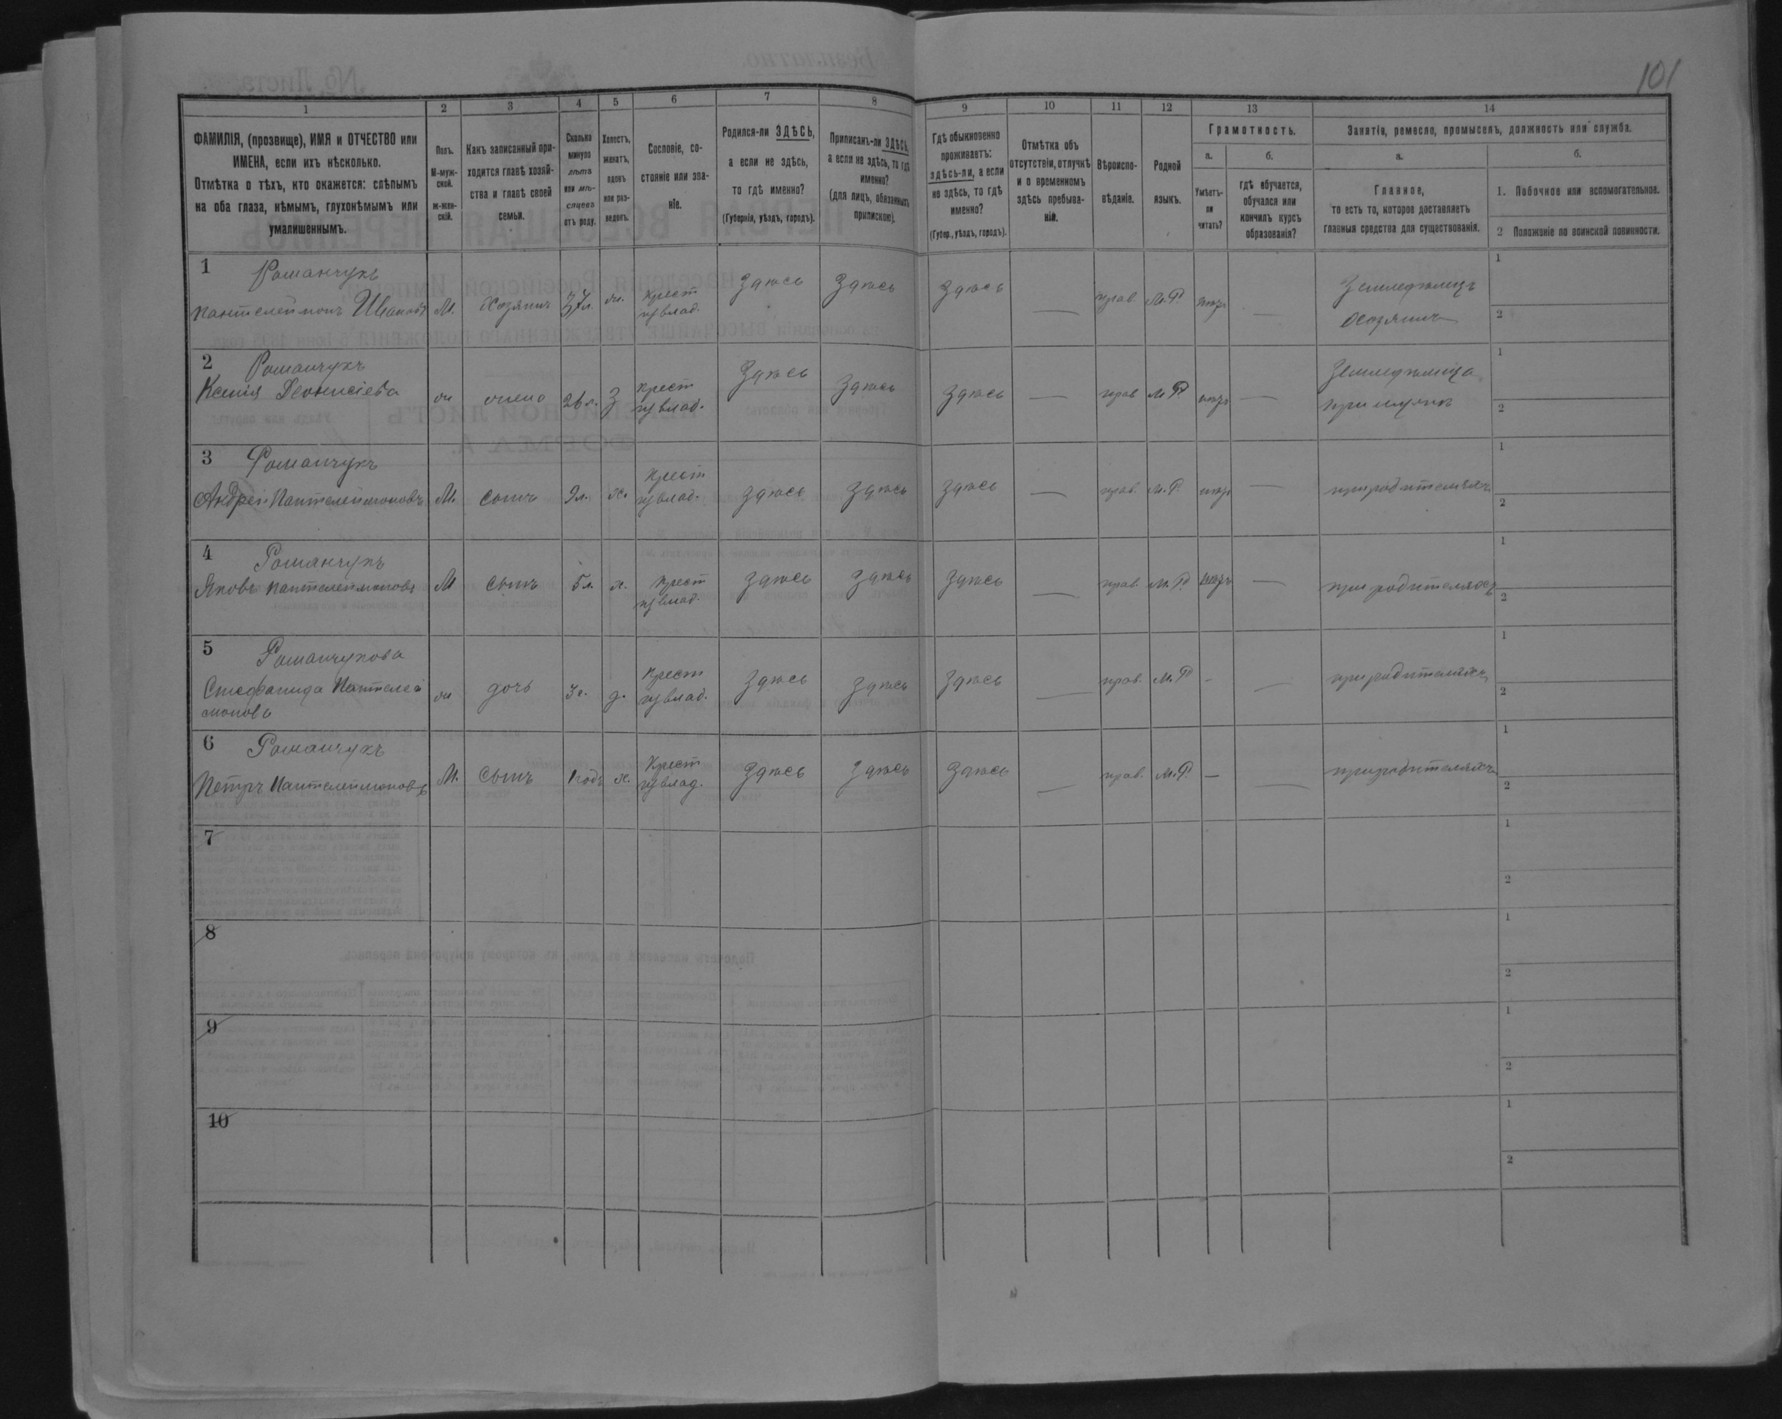 101
1
2
3
4
5
6
7
8
9
10
11
12
13
14
ФАМИЛІЯ, (прозвище), ИМЯ и ОТЧЕСТВО или
ИМЕНА, если ихъ нѣсколько.
Отмѣтка о тѣхъ, кто окажется: слѣпымъ
на оба глаза, нѣмымъ, глухонѣмымъ или
умалишеннымъ.
Полъ.
М-муж-
ской.
Ж-жен-
скій.
Какъ записанный при-
ходится главѣ хозяй-
ства и главѣ своей
семьи.
Сколько
минуло
лѣтъ
или мѣ-
сяцевъ
отъ роду.
Холостъ,
женатъ,
вдовъ
или раз-
веденъ.
Сословіе, со-
стояніе или зва-
ніе.
Родился-ли ЗДѢСЬ,
а если не здѣсь,
то гдѣ именно?
(Губернія, уѣздъ, городъ).
Приписанъ-ли ЗДѢСЬ,
а если не здѣсь, то гдѣ
именно?
(для лицъ, обязанныхъ
припискою).
Гдѣ обыкновенно
проживаетъ:
здѣсь-ли, а если
не здѣсь, то гдѣ
именно?
(Губер., уѣздъ, городъ).
Отмѣтка объ
отсутствіи, отлучкѣ
и о временномъ
здѣсь пребыва-
ніи.
Вѣроиспо-
вѣданіе.
Родной
языкъ.
Грамотность.
а.
Умѣетъ-
ли
читать?
б.
гдѣ обучается,
обучался или
кончилъ курсъ
образованія?
Занятіе, ремесло, промыселъ, должность или служба.
а.
Главное,
то есть то, которое доставляетъ
главныя средства для существованія.
б.
1. Побочное или вспомогательное.
2 Положеніе по воинской повинности.
1 Романчукъ
Пантелеймонъ Ивановъ М. Хозяинъ 37л. Крест Здѣсь Здѣсь Здѣсь — прав М.Р. — Земледѣлецъ
хозяинъ
1
2
2 Романчукъ
Ксенія Деонисіева жена Крест Здѣсь Здѣсь Здѣсь — прав М.Р. — Земледѣлица
при мужѣ
1
2
3 Романчукъ
Андрей Пантелеймоновъ М. сынъ 9л. х. Крест Здѣсь Здѣсь Здѣсь — прав. М.Р. — при родителяхъ
1
2
4 Романчукъ
Яковъ Пантелеймоновъ М сынъ 5л. х. Крест Здѣсь Здѣсь Здѣсь — прав. М.Р. — при родителяхъ
1
2
5 Романчукова
Стефанида Пантелей
монова дочь 3г. д. Крест Здѣсь Здѣсь Здѣсь — прав. М.Р. - — при родителяхъ
1
2
6 Романчукъ
Петръ Пантелеймоновъ М. сынъ 1годъ х. Крест Здѣсь Здѣсь Здѣсь — прав. М.Р. — — при родителяхъ
1
2
7
1
2
8
1
2
9
1
2
10
1
2